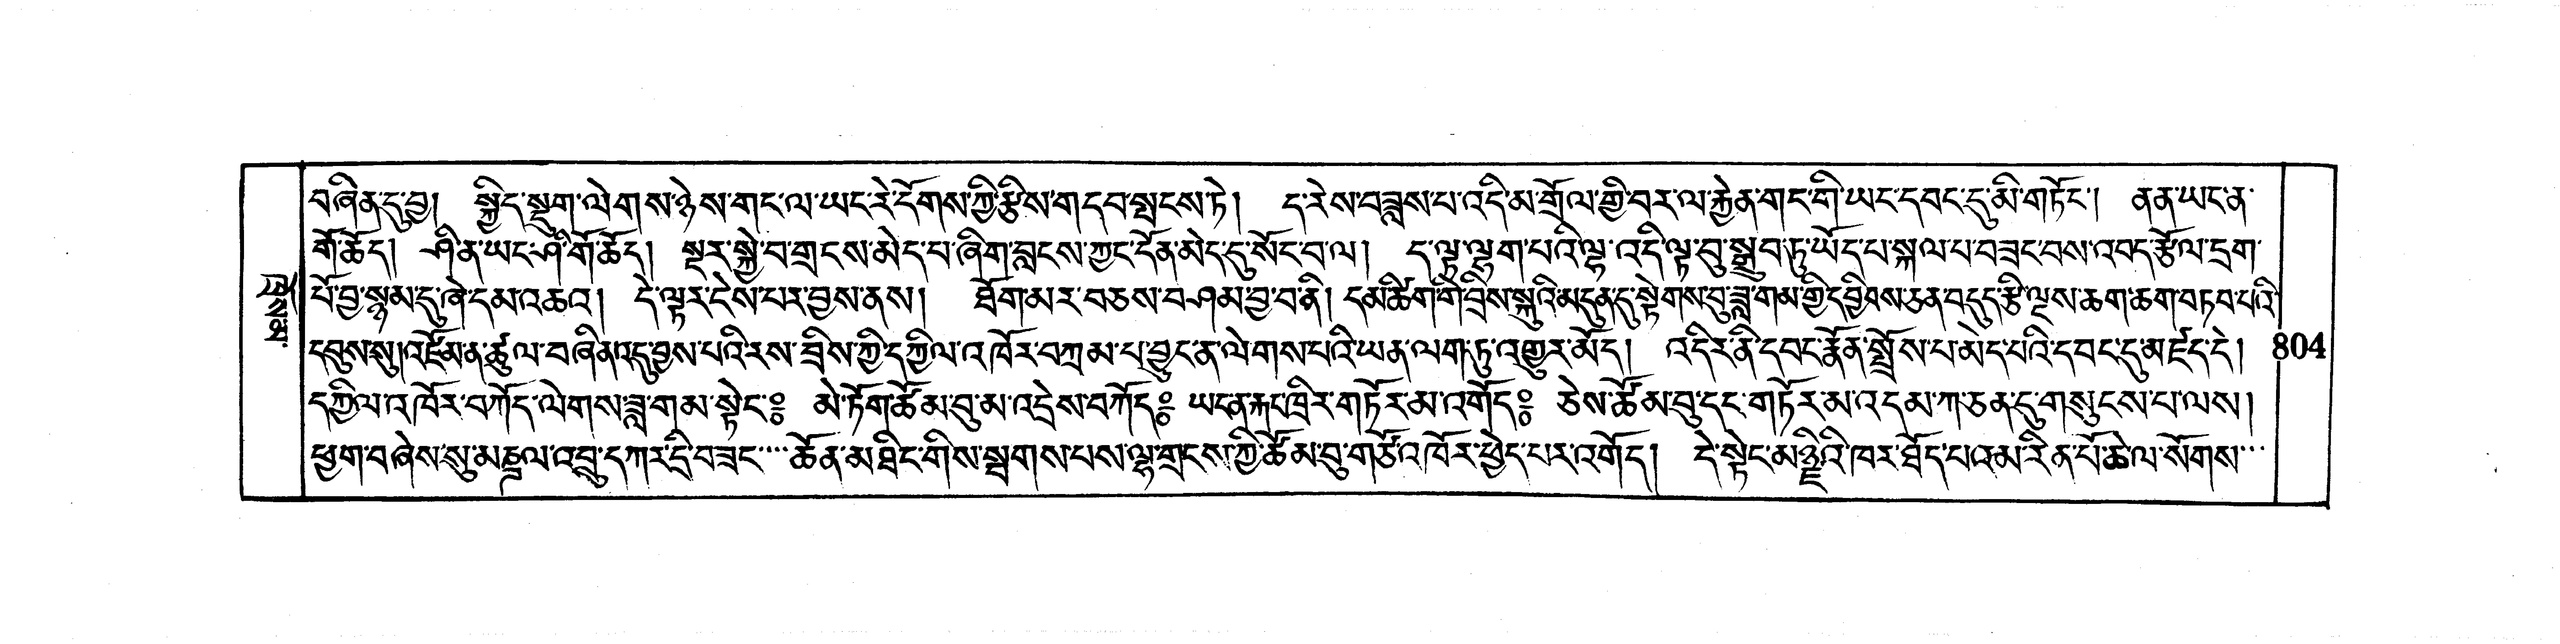 བཞིན་དུ་བྱ། སྐྱིད་སྡུག་ལེགས་ཉེས་གང་ལ་ཡང་རེ་དོགས་ཀྱི་རྩིས་གདབ་སྤངས་ཏེ། ད་རེས་བཟླས་པ་འདི་མ་གྲོལ་གྱི་བར་ལ་རྐྱེན་གང་གི་ཡང་དབང་དུ་མི་གཏོང་། ནན་ཡང་ན་
གོ་ཆོད། ཤིན་ཡང་ཤི་གོ་ཆོད། སྔར་སྐྱེ་བ་གྲངས་མེད་པ་ཞིག་བླངས་ཀྱང་དོན་མེད་དུ་སོང་བ་ལ། ད་ལྟ་ལྷག་པའི་ལྷ་འདི་ལྟ་བུ་སྒྲུབ་ཏུ་ཡོད་པ་སྐལ་པ་བཟང་བས་འབད་རྩོལ་དྲག་
པོ་བྱ་སྙམ་དུ་ཞེ་དམ་འཆའ། དེ་ལྟར་ངེས་པར་བྱས་ནས། ཐོག་མར་བཅས་བཤམ་བྱ་བ་ནི། དམ་ཚིག་གི་བྲིས་སྐུའི་མདུན་དུ་སྟེགས་བུ་ཟླ་གམ་གྱི་དབྱིབས་ཅན་བདུད་རྩི་ལྔས་ཆག་ཆག་བཏབ་པའི་
དབུས་སུ། འཛོམ་ན་ཚུལ་བཞིན་དུ་བྱས་པའི་རས་བྲིས་ཀྱི་དཀྱིལ་འཁོར་བཀྲམ་པ་བྱུང་ན་ལེགས་པའི་ཡན་ལག་ཏུ་འགྱུར་མོད། འདིར་ནི་དབང་རྣོན་སྤྲོས་པ་མེད་པའི་དབང་དུ་མཛད་དེ།
དཀྱིལ་འཁོར་བཀོད་ལེགས་ཟླ་གམ་སྟེང་༔ མེ་ཏོག་ཚོམ་བུ་མ་འདྲེས་བཀོད༔ ཡང་ན་རྐང་ཁྲིར་གཏོར་མ་འགོད༔ ཅེས་ཚོམ་བུ་དང་གཏོར་མ་འདམ་ཀ་ཅན་དུ་གསུངས་པ་ལས།
ཕྱག་བཞེས་སུ་མཎྜལ་འབྲུ་དཀར་དྲི་བཟང་ ཚོན་མཐིང་གིས་སྦགས་པས་ལྷ་གྲངས་ཀྱི་ཚོམ་བུ་གཙོ་འཁོར་ཕྱེད་པར་འགོད། དེ་སྟེང་མཉྫིའི་ཁར་ཐོད་པའམ་རིན་པོ་ཆེ་ལ་སོགས་
804